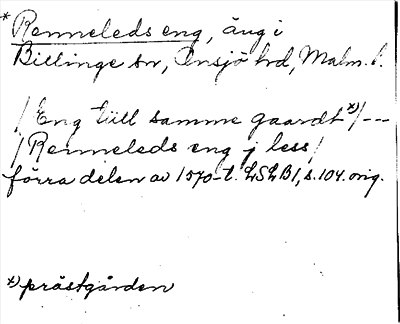 * Renneleds eng, äng i
Billinge sn, Onsjö hd, Malm. l.
/Eng tiill samme gaardt *)/---
/Renneleds eng j less/
förra delen av 1570-t. LSLB1, s. 104. orig.
*) prästgården